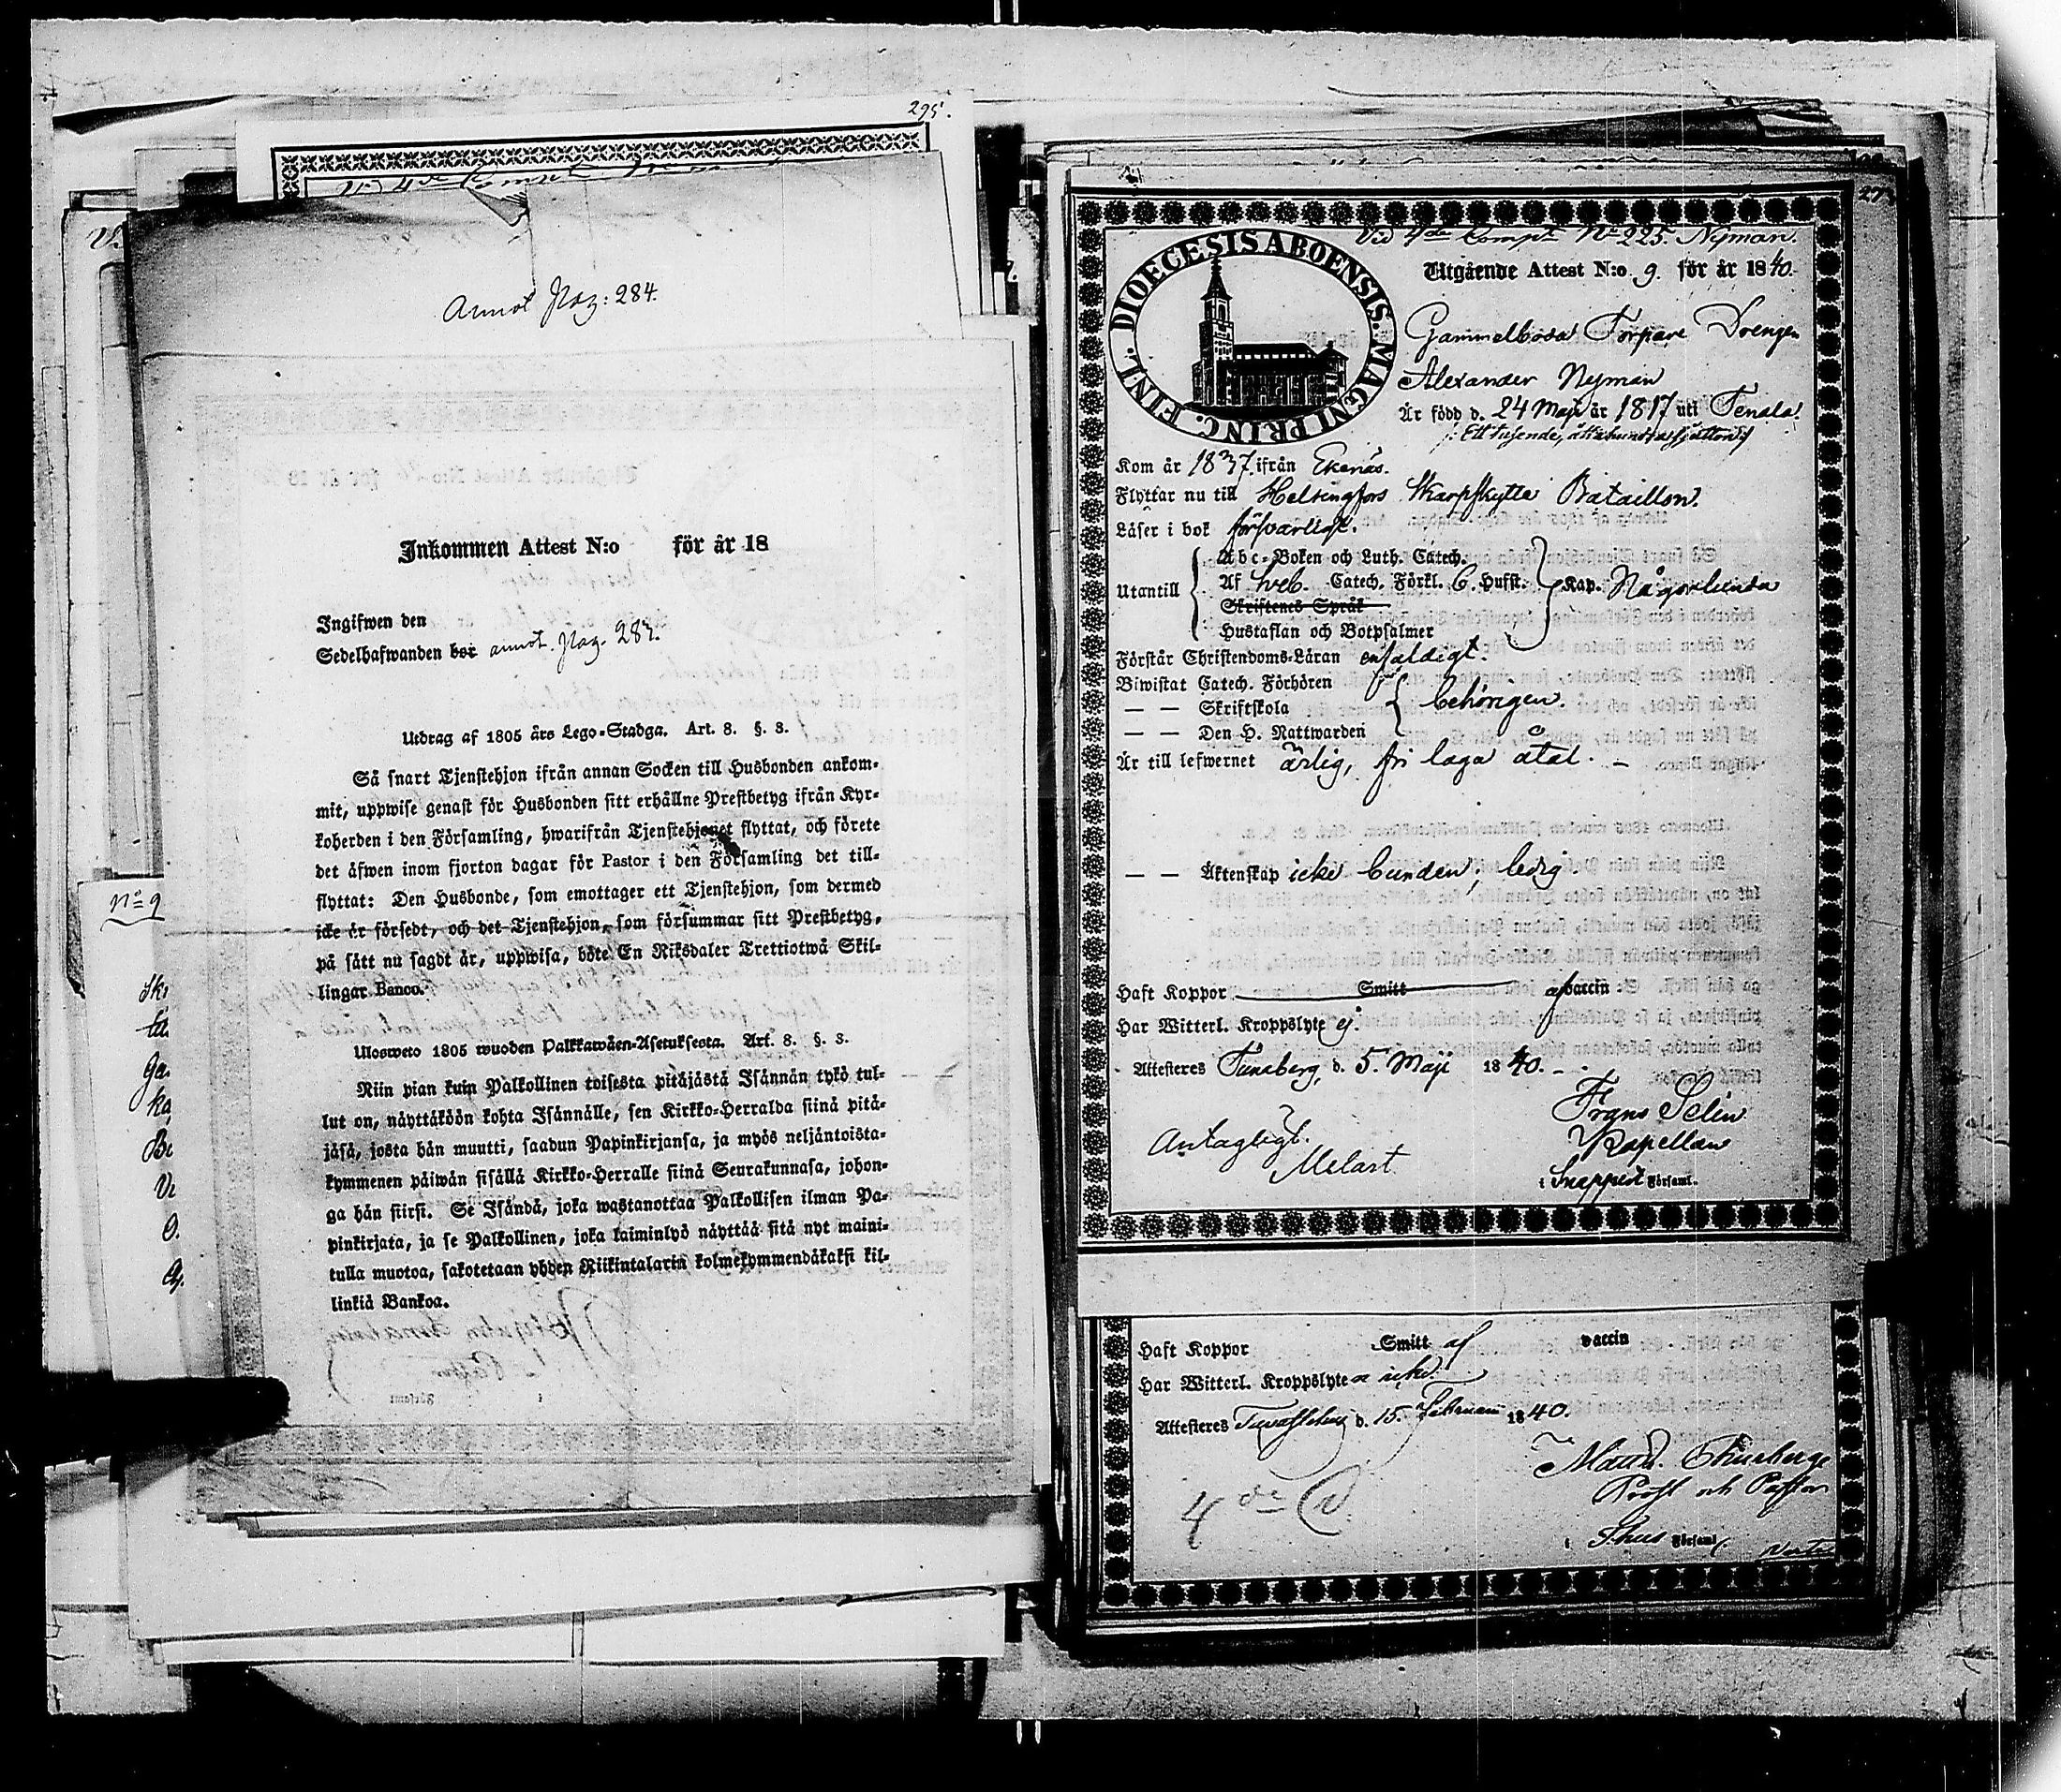 295.
Annot Pag: 284.
Inkommen Attest N:o för år 18
Ingifwen den
Sedelhafwanden bor annot. Pag. 283.
Utdrag af 1805 års Lego-Stadga. Art. 8. §. 3.
Så snart Tjenstehjon ifrån annan Socken till Husbonden ankom-
mit, uppwise genast för Husbonden sitt erhållne Prestbetyg ifrån Kyr-
koherden i den Församling, hwarifrån Tjenstehjonet flyttat, och förete
det äfwen inom fjorton dagar för Pastor i den Församling det till-
flyttat: Den Husbonde, som emottager ett Tjenstehjon, som dermed
icke är försedt, och det Tjenstehjon, som försummar sitt Prestbetyg,
på sätt nu sagdt är, uppwisa, böte En Riksdaler Trettiotwå Skil-
lingar Banco.
Ulosweto 1805 wuoden Palkkawäen-Asetuksesta. Art. 8. §. 3.
Niin pian kuin Palkollinen toisesta pitäjästä Isännän tykö tul-
lut on, näyttäköön kohta Isännälle, sen Kirkko-Herralda siinä pitä-
jäsä, josta hän muutti, saadun Papinkirjansa, ja myös neljäntoista-
kymmenen päiwän sisällä Kirkko-Herralle siinä Seurakunnasa, johon-
ga hän siirsi. Se Isändä, joka wastanottaa Palkollisen ilman Pa-
pinkirjata, ja se Palkollinen, joka laiminlyö näyttää sitä nyt maini-
tulla muotoa, sakotetaan yhden Riikintalarin kolmekymmendäkaksi kil-
linkiä Bankoa.
N:o 9
273
DIOECESIS ABOENSIS. MAGNI PRINC. FINL.
Vid 4de Compt No 225. Nyman.
Utgående Attest N:o 9. för år 1840.
Gammelboda Torpare Drengen
Alexander Nyman
Är född d. 24 Maji år 1817 uti Tenala
/: Ett tusende, åttahundrasjutton :/
Kom år 1837. ifrån Ekenäs.
Flyttar nu till Helsingfors Skarpskytte Bataillon.
Läser i bok försvarligt.
Utantill
Abc-Boken och Luth. Catech.
Af Sveb. Catech. Förkl. 6. Hufst. Kap. Någorlunda
Skriftenes Språk
Hustaflan och Botpsalmer
Förstår Christendoms-Läran enfaldigt.
Biwistat Catech. Förhören
— — Skriftskola behörigen.
— — Den H. Nattwarden
Är till lefwernet ärlig, fri laga åtal. —
— — Äktenskap icke bunden; ledig.
Haft Koppor Smitt af vaccin
Har Witterl. Kroppslyte ej.
Attesteres d. 5. Maji 1840. — .
Frans Selin
Kapellan
i Snappert Församl.
Antagligt.
Melart
Haft Koppor Smitt af vaccin
Har Witterl. Kroppslyte icke.
Attesteres Tavastehus d. 15. Februarii 1840.
Prost och Pastor
4de C
i Församl.